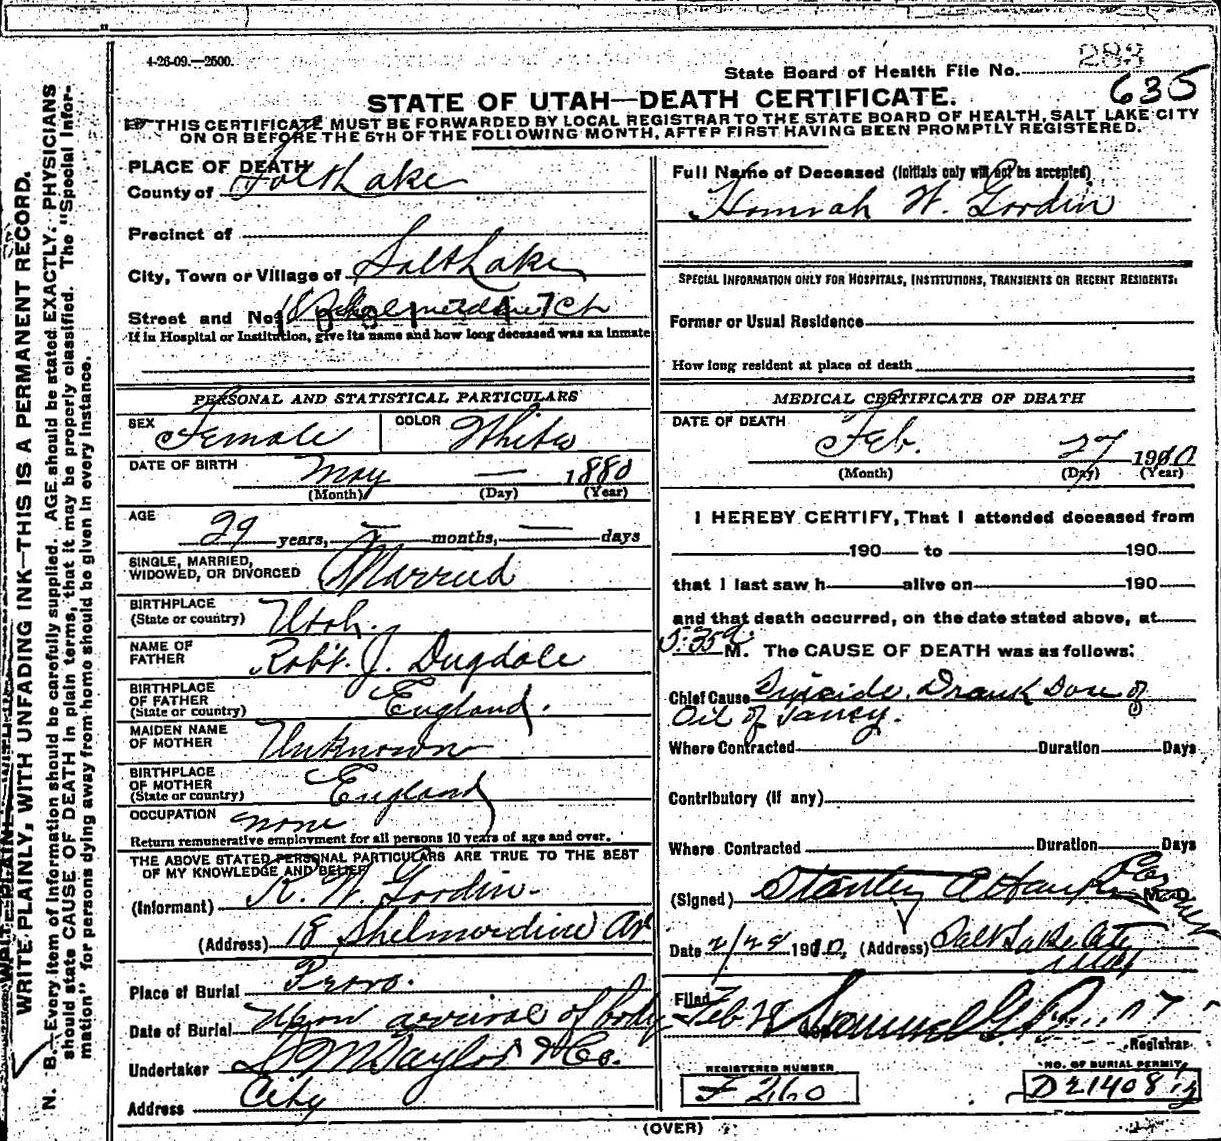 4-26-09.—2500.
283
State Board of Health File No.
635
STATE OF UTAH—DEATH CERTIFICATE.
THIS CERTIFICATE MUST BE FORWARDED BY LOCAL REGISTRAR TO THE STATE BOARD OF HEALTH, SALT LAKE CITY
ON OR BEFORE THE 5TH OF THE FOLLOWING MONTH, AFTER FIRST HAVING BEEN PROMPTLY REGISTERED.
WRITE PLAINLY, WITH UNFADING INK—THIS IS A PERMANENT RECORD.
N. B.—Every item of information should be carefully supplied. AGE should be stated EXACTLY. PHYSICIANS
should state CAUSE OF DEATH in plain terms, that it may be properly classified. The "Special Infor-
mation" for persons dying away from home should be given in every instance.
PLACE OF DEATH
County of Salt Lake
Precinct of
City, Town or Village of Salt Lake
Street and No. 18 Ct
If in Hospital or Institution, give its name and how long deceased was an inmate
PERSONAL AND STATISTICAL PARTICULARS
SEX Female COLOR White
DATE OF BIRTH May — 1880
(Month) (Day) (Year)
AGE 29 years, — months, — days
SINGLE, MARRIED,
WIDOWED, OR DIVORCED Married
BIRTHPLACE
(State or country) Utah.
NAME OF
FATHER Robt. J. Dugdale
BIRTHPLACE
OF FATHER
(State or country) England.
MAIDEN NAME
OF MOTHER Unknown
BIRTHPLACE
OF MOTHER
(State or country) England
OCCUPATION none
Return remunerative employment for all persons 10 years of age and over.
THE ABOVE STATED PERSONAL PARTICULARS ARE TRUE TO THE BEST
OF MY KNOWLEDGE AND BELIEF
(Informant) R. W. Gordin.
(Address) 18 Shelmerdine
Place of Burial Provo.
Date of Burial Upon arrival of body
Undertaker S M Taylor & Co.
Address City
Full Name of Deceased (Initials only will not be accepted)
Hannah W. Gordin
SPECIAL INFORMATION ONLY FOR HOSPITALS, INSTITUTIONS, TRANSIENTS OR RECENT RESIDENTS:
Former or Usual Residence
How long resident at place of death
MEDICAL CERTIFICATE OF DEATH
DATE OF DEATH
Feb. 27 1910
(Month) (Day) (Year)
I HEREBY CERTIFY, That I attended deceased from
190 to 190
that I last saw h alive on 190
and that death occurred, on the date stated above, at
5:35 a. M. The CAUSE OF DEATH was as follows:
Chief Cause Suicide. Drank Dose of
Oil of Tansy.
Where Contracted Duration Days
Contributory (if any)
Where Contracted Duration Days
(Signed) Stanley A M. D.
Date 2/28 1910, (Address) Salt Lake City
Utah
Filed Feb 28 Samuel G.
Registrar
REGISTERED NUMBER
F 260
NO. OF BURIAL PERMIT
D 21408
(OVER)